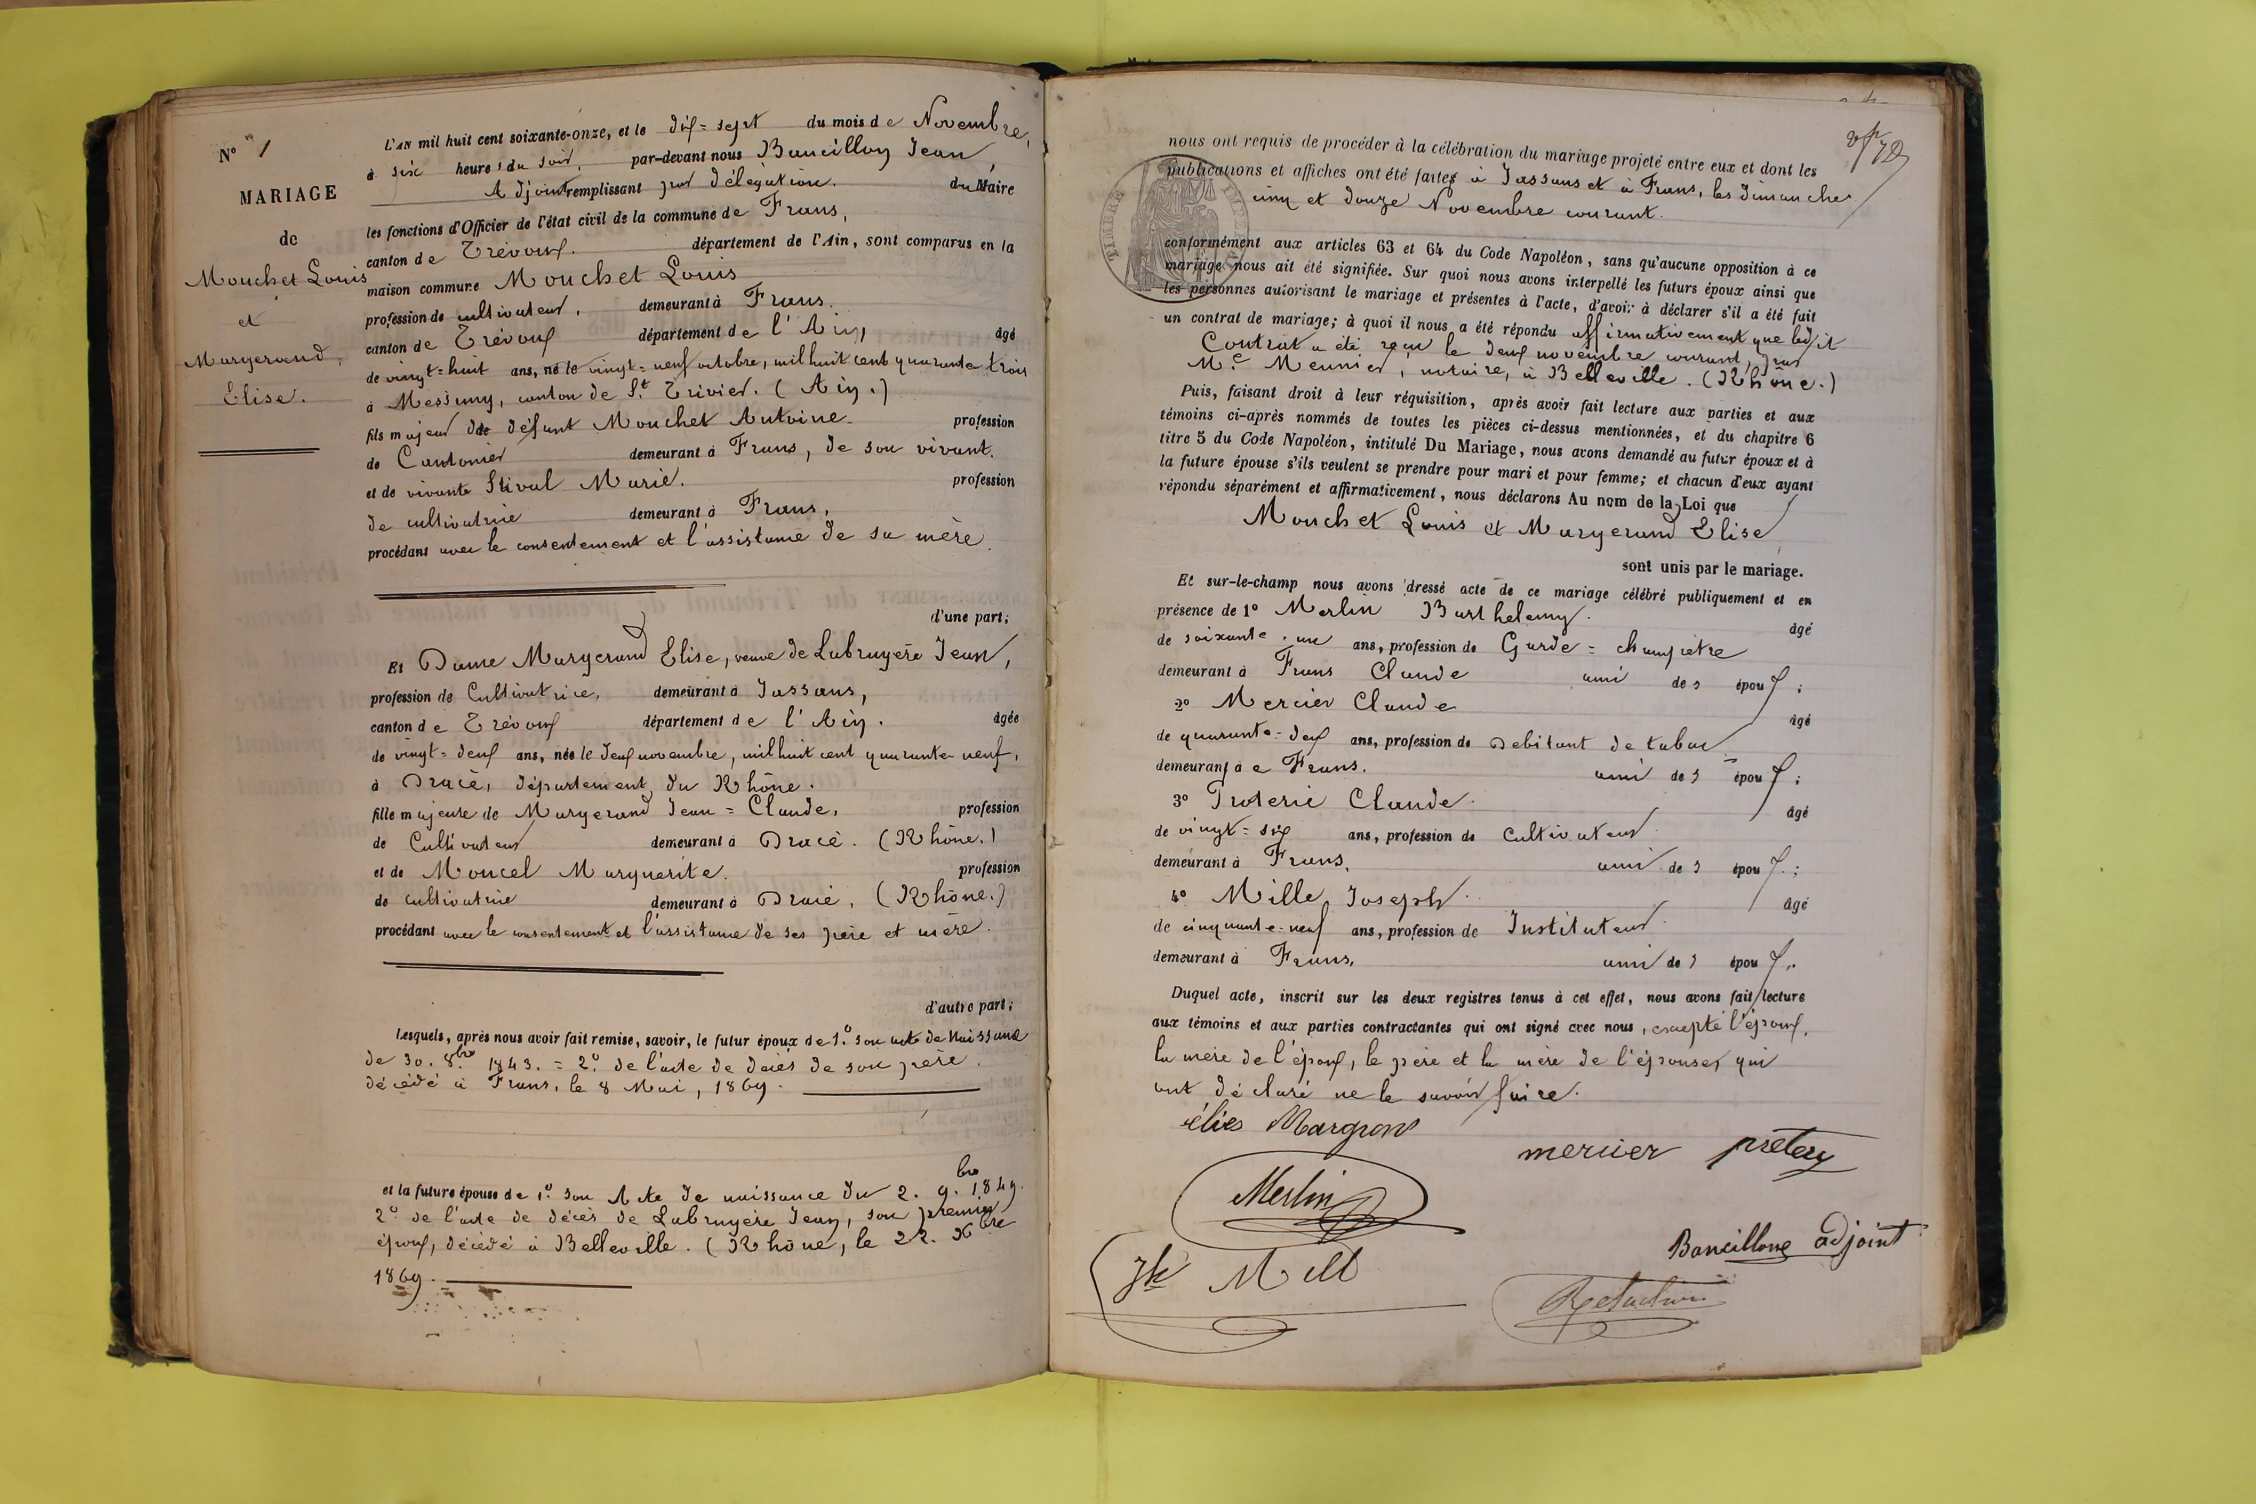 N° 1
MARIAGE
de
Mouchet Louis
et
Margerand,
Elise.
L'AN mil huit cent soixante-onze, et le dix=sept du mois de Novembre,
à six heures du soir, par-devant nous Bancillon Jean,
Adjoint remplissant par délégation. du Maire
les fonctions d'Officier de l'état civil de la commune de Frans,
canton de Trévoux. département de l'Ain, sont comparus en la
maison commune Mouchet Louis
profession de cultivateur, demeurant à Frans.
canton de Trévoux département de l'Ain, âgé
de vingt=huit ans, né le vingt=neuf octobre, mil huit cent quarante trois
à Messimy, canton de St. Trivier. (Ain.)
fils majeur de défunt Mouchet Antoine. profession
de Cantonier demeurant à Frans, de son vivant.
et de vivante Stival Marie. profession
de cultivatrice demeurant à Frans,
procédant avec le consentement et l'assistance de sa mère.
d'une part;
Et Dame Margerand Elise, veuve de Labruyère Jean,
profession de Cultivatrice, demeurant à Jassans,
canton de Trévoux département de l'Ain. âgée
de vingt=deux ans, née le deux novembre, mil huit cent quarante-neuf,
à Dracé, département du Rhône.
fille majeure de Margerand Jean=Claude, profession
de Cultivateur demeurant à Dracé. (Rhône.)
et de Moncel Marguerite. profession
de cultivatrice demeurant à Dracé, (Rhône.)
procédant avec le consentement et l'assistance de ses père et mère.
d'autre part;
Lesquels, après nous avoir fait remise, savoir, le futur époux de 1.° son acte de Naissance
de 30. 8bre 1843. = 2.° de l'acte de décès de son père.
décédé à Frans, le 8 Mai, 1869.
et la future épouse de 1.° son Acte de naissance du 2. 9.bre 1849.
2.° de l'acte de décès de Labruyère Jean, son premier
époux, décédé à Belleville. (Rhône, le 22. Xbre
1869.
nous ont requis de procéder à la célébration du mariage projeté entre eux et dont les
publications et affiches ont été faites à Jassans et à Frans, les dimanches
cinq et douze Novembre courant.
TIMBRE
conformément aux articles 63 et 64 du Code Napoléon, sans qu'aucune opposition à ce
mariage nous ait été signifiée. Sur quoi nous avons interpellé les futurs époux ainsi que
les personnes autorisant le mariage et présentes à l'acte, d'avoir à déclarer s'il a été fait
un contrat de mariage; à quoi il nous a été répondu affirmativement que ledit
Contrat a été reçu le deux novembre courant, par
Me Meunier, notaire, à Belleville. (Rhône.)
Puis, faisant droit à leur réquisition, après avoir fait lecture aux parties et aux
témoins ci-après nommés de toutes les pièces ci-dessus mentionnées, et du chapitre 6
titre 5 du Code Napoléon, intitulé Du Mariage, nous avons demandé au futur époux et à
la future épouse s'ils veulent se prendre pour mari et pour femme; et chacun d'eux ayant
répondu séparément et affirmativement, nous déclarons Au nom de la Loi que
Mouchet Louis et Margerand Elise
sont unis par le mariage.
Et sur-le-champ nous avons dressé acte de ce mariage célébré publiquement et en
présence de 1° Merlin Barthelemy. âgé
de soixante-un ans, profession de Garde=champêtre
demeurant à Frans Claude ami des époux;
2° Mercier Claude âgé
de quarante-deux ans, profession de Debitant de tabac
demeurant à Frans. ami des époux;
3° Proterie Claude. âgé
de vingt=six ans, profession de Cultivateur
demeurant à Frans, ami des époux;
4° Mille Joseph. âgé
de cinquante-neuf ans, profession de Instituteur
demeurant à Frans, ami des époux,
Duquel acte, inscrit sur les deux registres tenus à cet effet, nous avons fait lecture
aux témoins et aux parties contractantes qui ont signé avec nous, excepté l'époux,
la mère de l'époux, le père et la mère de l'épouse, qui
ont déclaré ne le savoir faire.
élies Margron
mercier pretery
Merlin
Bancillone adjoint
Jh Mill